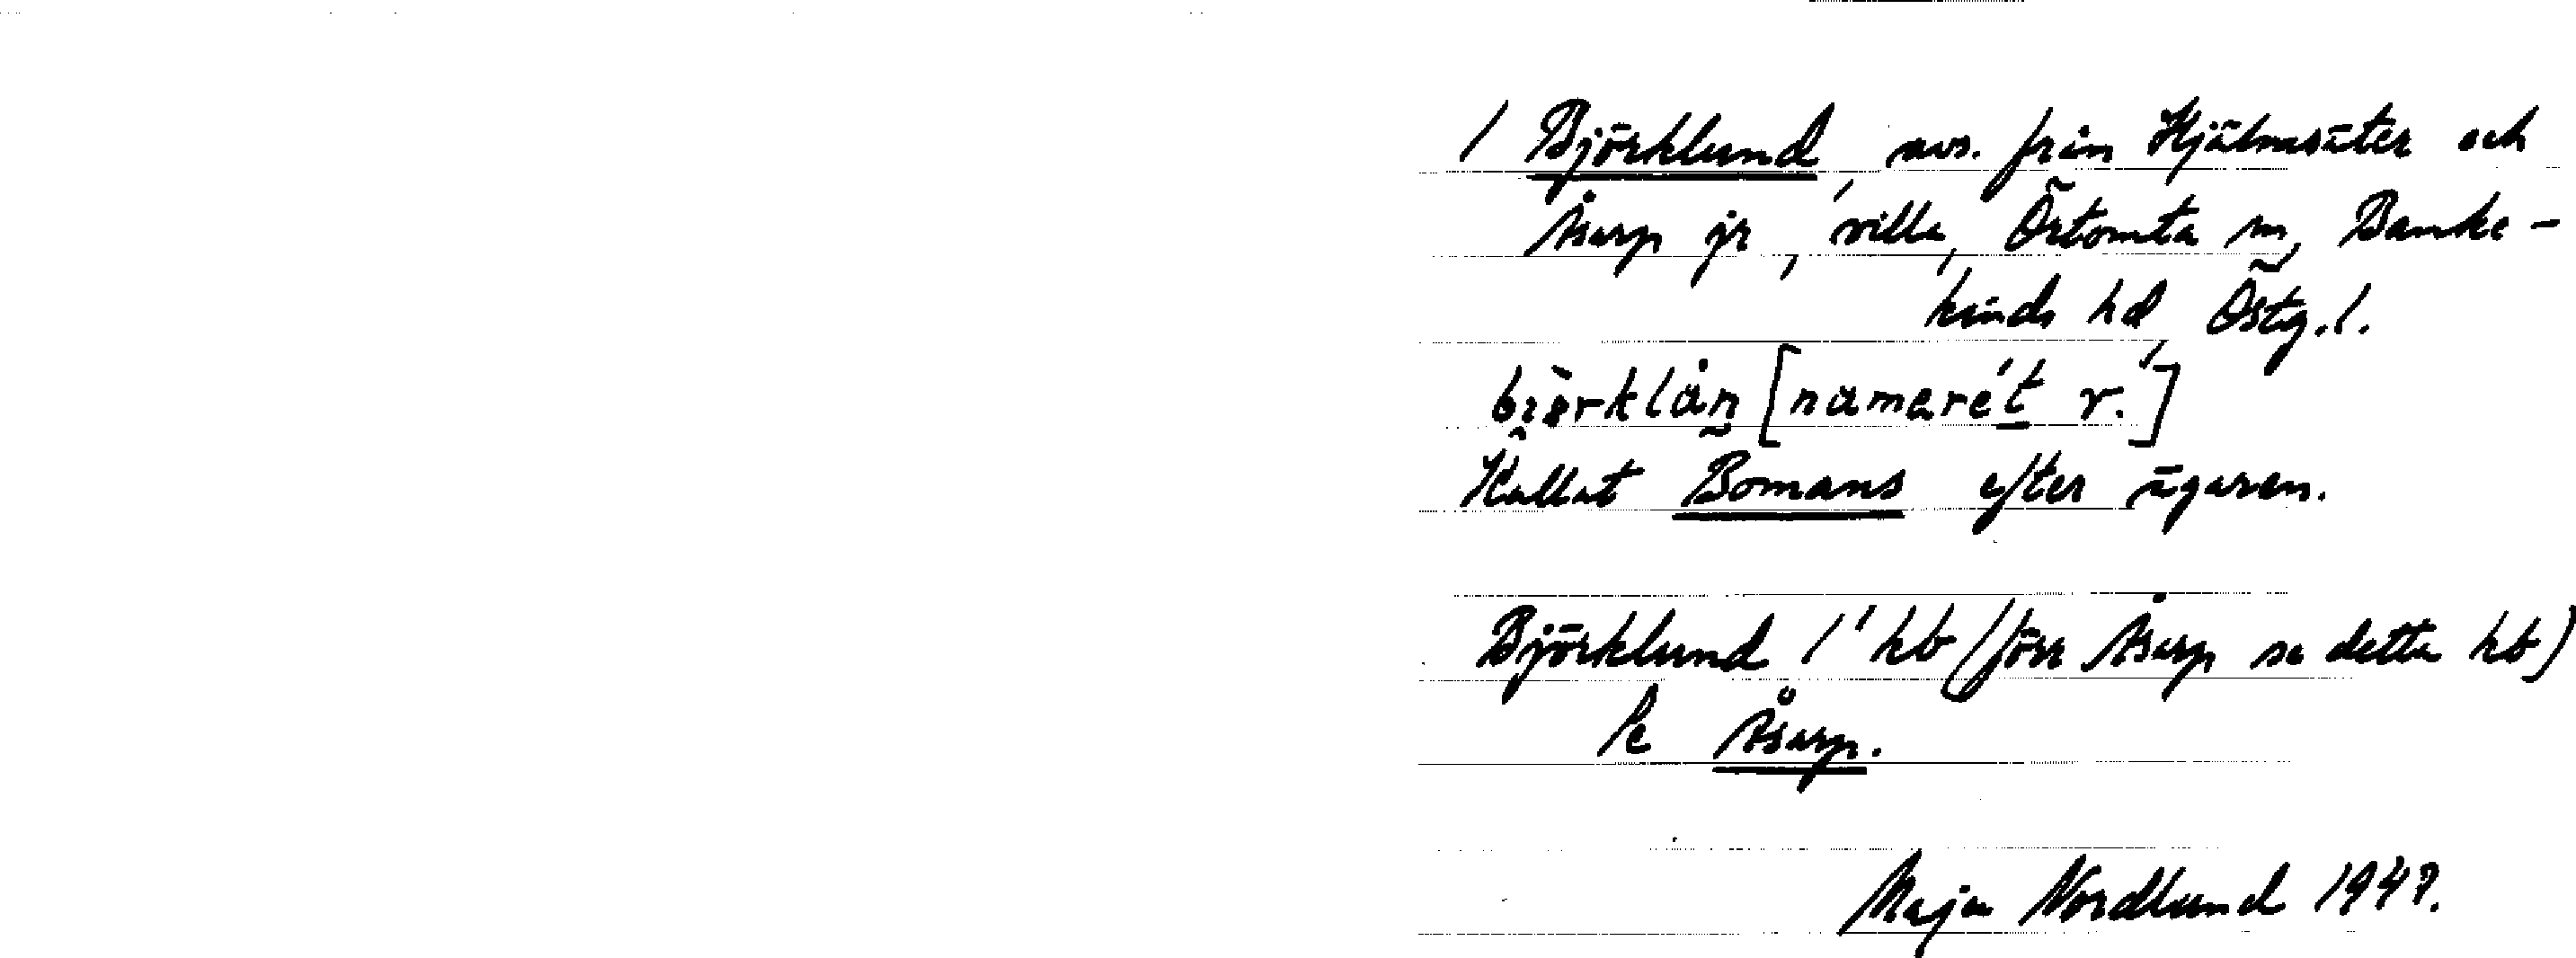 1 Björklund, avs. från Hjälmsäter och
Åsarp jr, villa, Örtomta sn, Banke-
kinds hd, Östg. l.
björklån [namnet r.]
Kallat Bomans efter ägaren.
Björklund 1' hb (förr Åsarp se detta hb)
Se Åsarp.
Maja Nordlund 1947.